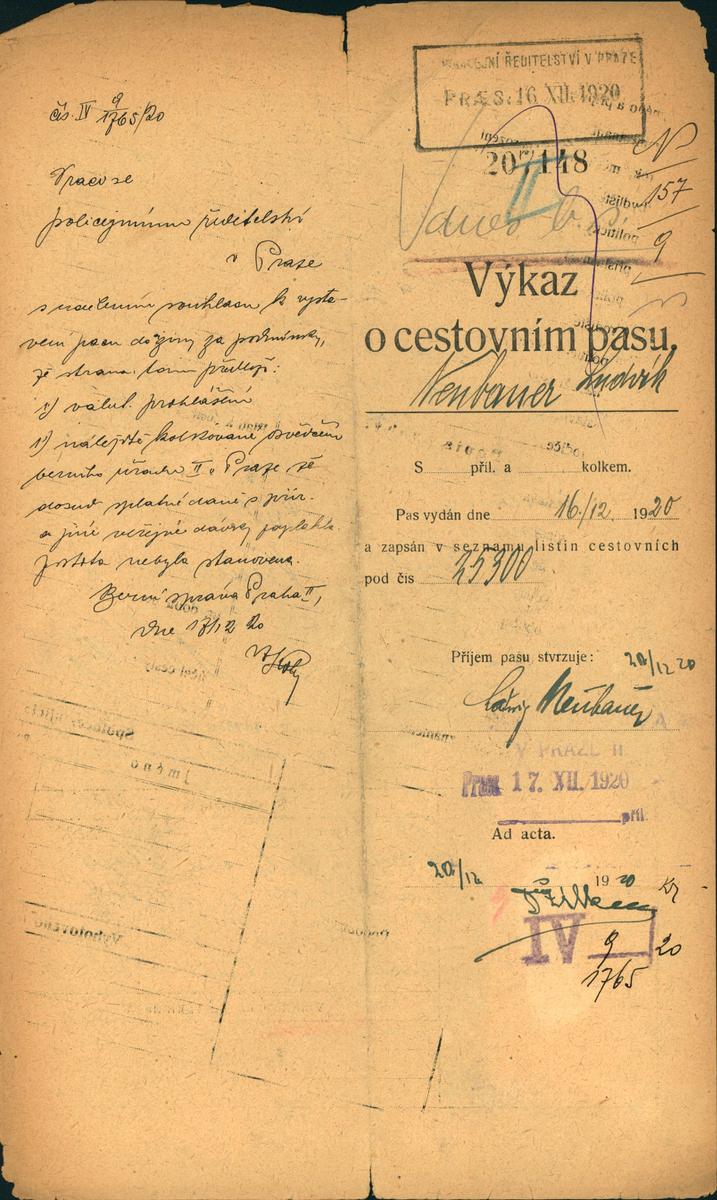 čís. IV 9/1765/20
Vrací se
policejnímu ředitelství
v Praze
s udělením souhlasu k vysta-
vení pasu do ciziny za podmínky,
že strana tam předloží:
1) valut. prohlášení
berního úřadu II v Praze že
dosud splatné daně s přír.
a jiné veřejné dávky
jistota nebyla stanovena.
Berní správa Praha II,
dne 17/12 20
POLICEJNÍ ŘEDITELSTVÍ V PRAZE
PRÆS. 16 XII. 1920
207,148
II
dnes
N
157
9
Výkaz
o cestovním pasu.
Neubauer Ludvík
S příl. a kolkem.
Pas vydán dne 16./12. 1920
a zapsán v seznamu listin cestovních
pod čís 25300
Příjem pasu stvrzuje: 20/12 20
Ludwig Neubauer
V PRAZE II
Praes. 17. XII. 1920
příl.
Ad acta.
20/12 1920
IV 9 20
1765